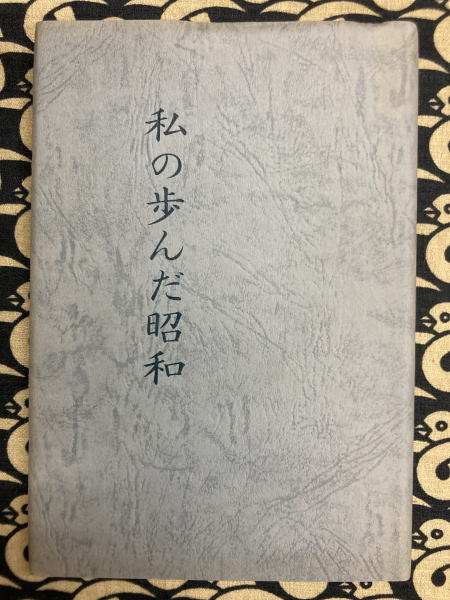 私の歩んだ昭和